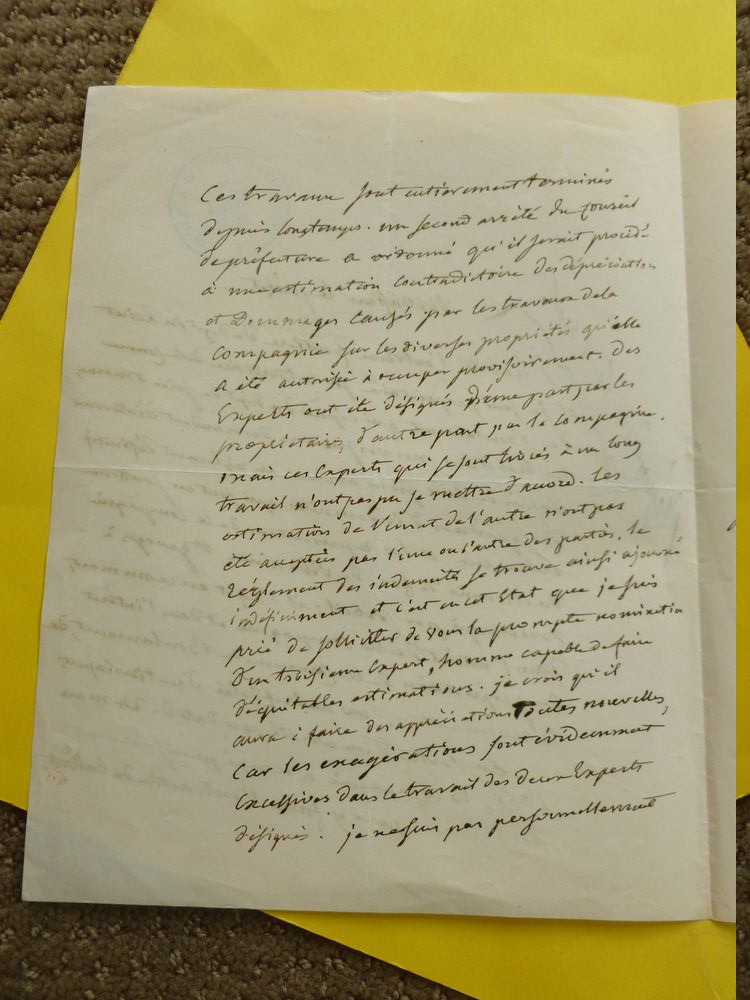 Ces travaux sont entièrement terminés
depuis longtemps. un second arrêté du Conseil
de préfecture a ordonné qu'il serait procédé
à une estimation contradictoire des dépréciations
et Dommages causés par les travaux de la
Compagnie sur les diverses propriétés qu'elle
a été autorisée à occuper provisoirement. Des
Experts ont été désignés d'une part, par les
propriétaires, d'autre part par la compagnie.
mais ces experts qui se sont livrés à un long
travail n'ont pas pu se mettre d'accord. Les
estimations de l'un et de l'autre n'ont pas
été acceptées par l'une ou l'autre des parties. le
Règlement des indemnités se trouve ainsi ajourné
indéfiniment et c'est en cet Etat que je suis
prié de solliciter de vous la prompte nomination
d'un troisième expert, homme capable de faire
d'équitables estimations. je crois qu'il
aura à faire des appréciations Toutes nouvelles,
Car les exagérations sont évidemment
Excessives dans le travail des deux Experts
désignés. je ne suis pas personnellement